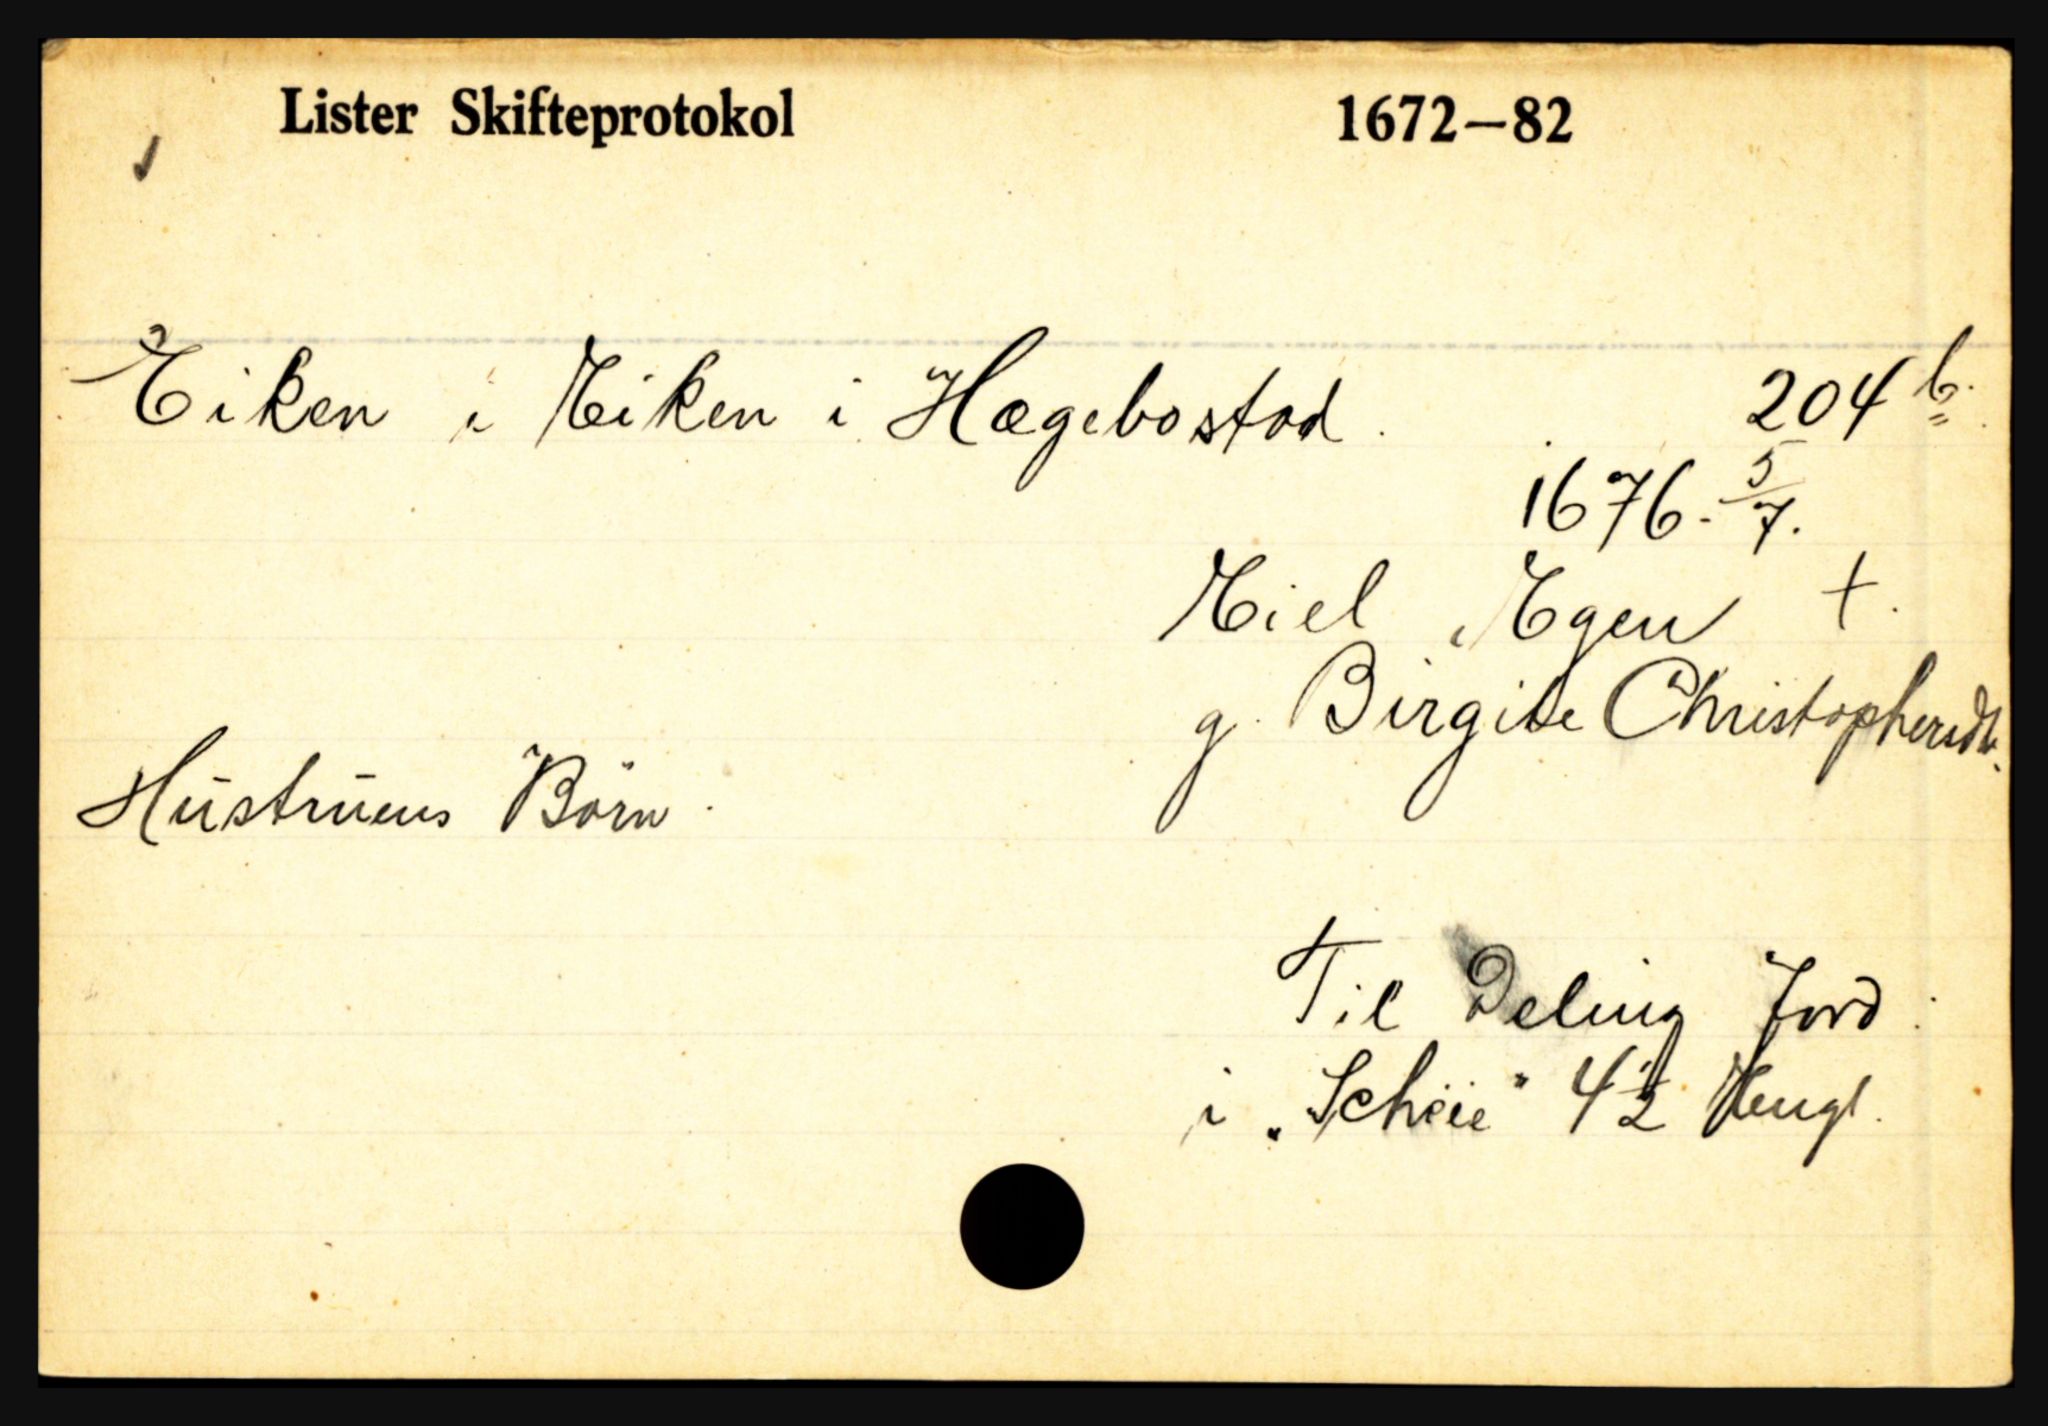 Lister Skifteprotokol 1672–82
Eiken i Eiken i Hægebostad. 204 b.
1676. 5/7.
Eiel Egen †.
g. Birgite Christophersdtr.
Hustruens Börn.
Til Deling Jord:
i „Scheie" 4½ Hengl.